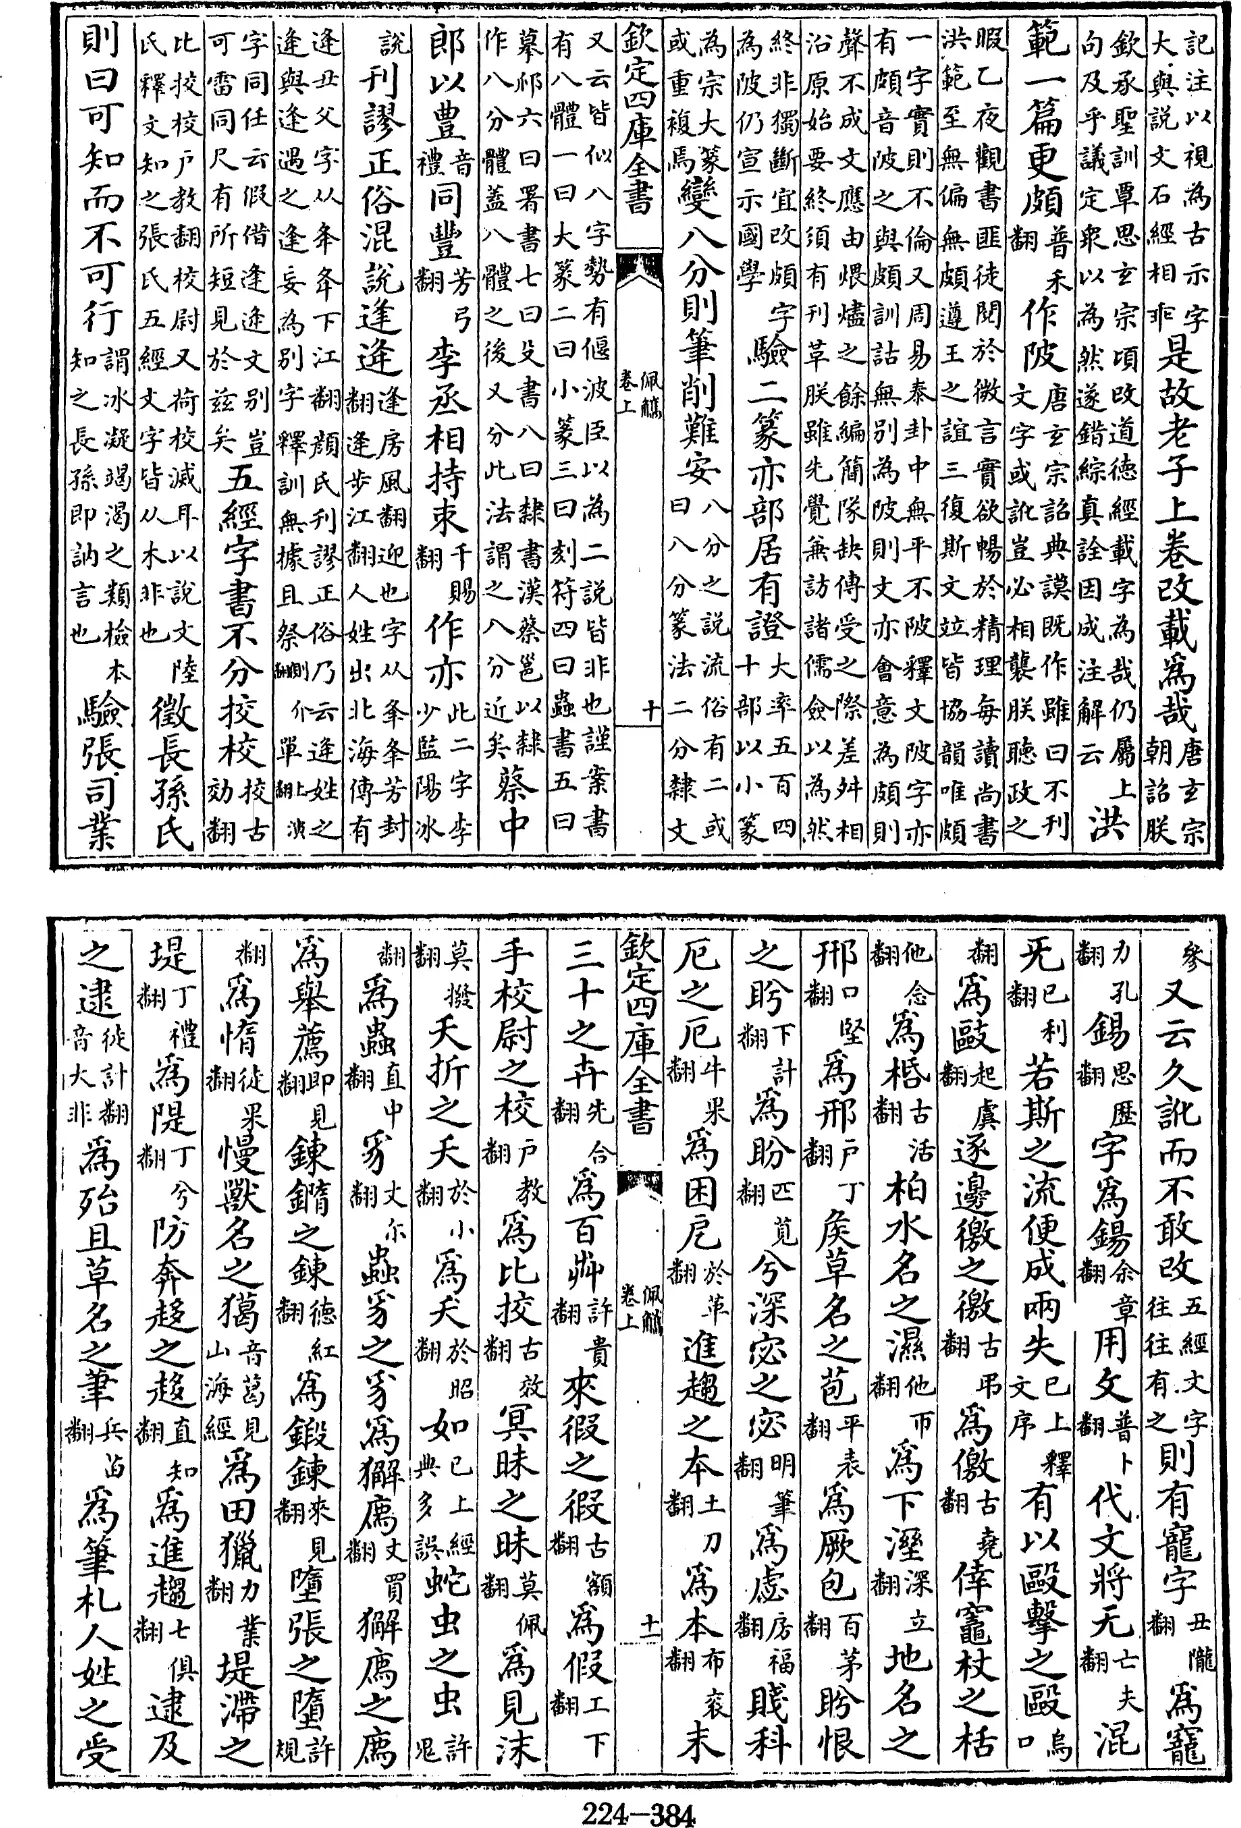 記注以視為古示字大與說文石經相乖是故老子上卷改載爲哉唐玄宗朝詔朕
欽承聖訓覃思玄宗頃改道德經載字為哉仍屬上句及乎議定衆以為然遂錯綜真詮因成注解云洪
範一篇更頗普禾翻作陂唐玄宗詔典謨既作雖曰不刊文字或訛豈必相襲朕聽政之
暇乙夜觀書匪徒閱於微言實欲暢於精理每讀尚書洪範至無偏無頗遵王之誼三復斯文竝皆協韻唯頗
一字實則不倫又周易泰卦中無平不陂釋文陂字亦有頗音陂之與頗訓詁無別為陂則文亦會意為頗則
聲不成文應由煨燼之餘編簡隊缺傳受之際差舛相沿原始要終須有刊革朕雖先覺兼訪諸儒僉以為然
終非獨斷宜改頗字為陂仍宣示國學驗二篆亦部居有證大率五百四十部以小篆
為宗大篆或重複焉變八分則筆削難安八分之說流俗有二或曰八分篆法二分隸文
欽定四庫全書 佩觿卷上 十
又云皆似八字勢有偃波臣以為二說皆非也謹案書有八體一曰大篆二曰小篆三曰刻符四曰蟲書五曰
摹邸六曰署書七曰殳書八曰隸書漢蔡邕以隸作八分體蓋八體之後又分此法謂之八分近矣蔡中
郎以豊音禮同豐芳弓翻李丞相持朿千賜翻作亦此二字李少監陽冰
說刊謬正俗混說逢逄逢房風翻迎也字从夆夆芳封翻逄步江翻人姓出北海傳有
逄丑父字从夅夅下江翻顏氏刊謬正俗乃云逄姓之逄與逢遇之逢妄為別字釋訓無據且祭側介翻單上演翻
字同任云假借逢逄文別豈可雷同尺有所短見於茲矣五經字書不分挍校挍古効翻
比挍校戶教翻校尉又荷校滅耳以說文陸氏釋文知之張氏五經文字皆从木非也徵長孫氏
則曰可知而不可行謂冰凝竭渴之類檢本知之長孫即訥言也驗張司業
參又云久訛而不敢改五經文字往往有之則有寵字丑隴翻爲寵
力孔翻錫思歷翻字爲鍚余章翻用攵普卜翻代文將无亡夫翻混
旡已利翻若斯之流便成兩失已上釋文序有以毆擊之毆烏口
翻爲敺起虞翻逐邊徼之徼古弔翻爲儌古堯翻倖竈杖之栝
他念翻爲栝古活翻柏水名之濕他帀翻爲下溼深立翻地名之
邢口堅翻爲邢戶丁翻矦草名之苞平表翻爲厥包百茅翻盻恨
之盻下計翻爲盼匹莧翻兮深宓之宓明筆翻爲虙房福翻賤科
厄之厄牛果翻爲困戹於革翻進趨之夲土刀翻爲本布衮翻末
欽定四庫全書 佩觿卷上 十一
三十之卉先合翻爲百艸許貴翻來徦之徦古額翻爲假工下翻
手校尉之校戶教翻爲比挍古效翻冥昧之昧莫佩翻爲見沬
莫撥翻夭折之夭於小翻爲夭於昭翻如已上經典多誤蛇虫之虫許鬼
翻爲蟲直中翻豸丈尔翻蟲豸之豸爲獬廌丈買翻獬廌之廌
爲舉薦即見翻鍊鏅之鍊德紅翻爲鍛鍊來見翻墮張之墮許規
翻爲惰徒果翻慢獸名之猲音葛見山海經爲田獵力業翻堤滯之
堤丁禮翻爲隄丁兮翻防奔趍之趍直知翻爲進趨七俱翻逮及
之逮徒計翻音大非爲殆且草名之䔫兵苗翻爲筆札人姓之受
224-384